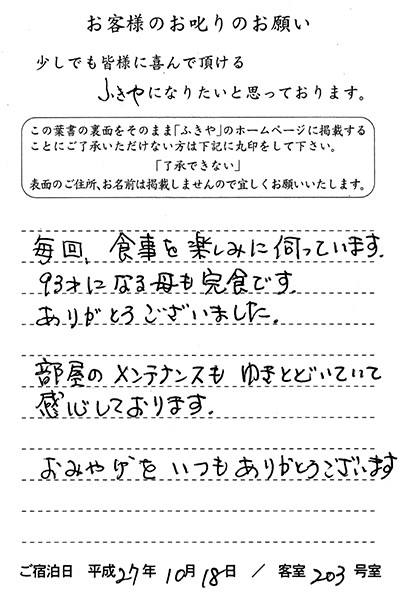 お客様のお叱りのお願い
少しでも皆様に喜んで頂ける
ふきやになりたいと思っております。
この葉書の裏面をそのまま「ふきや」のホームページに掲載する
ことにご了承いただけない方は下記に丸印をして下さい。
「了承できない」
表面のご住所、お名前は掲載しませんので宜しくお願いいたします。
毎回、食事を楽しみに伺っています。
93才になる母も完食です。
ありがとうございました。
部屋のメンテナンスもゆきとどいていて
感心しております。
おみやげをいつもありがとうございます
ご宿泊日 平成27年10月18日 / 客室203号室